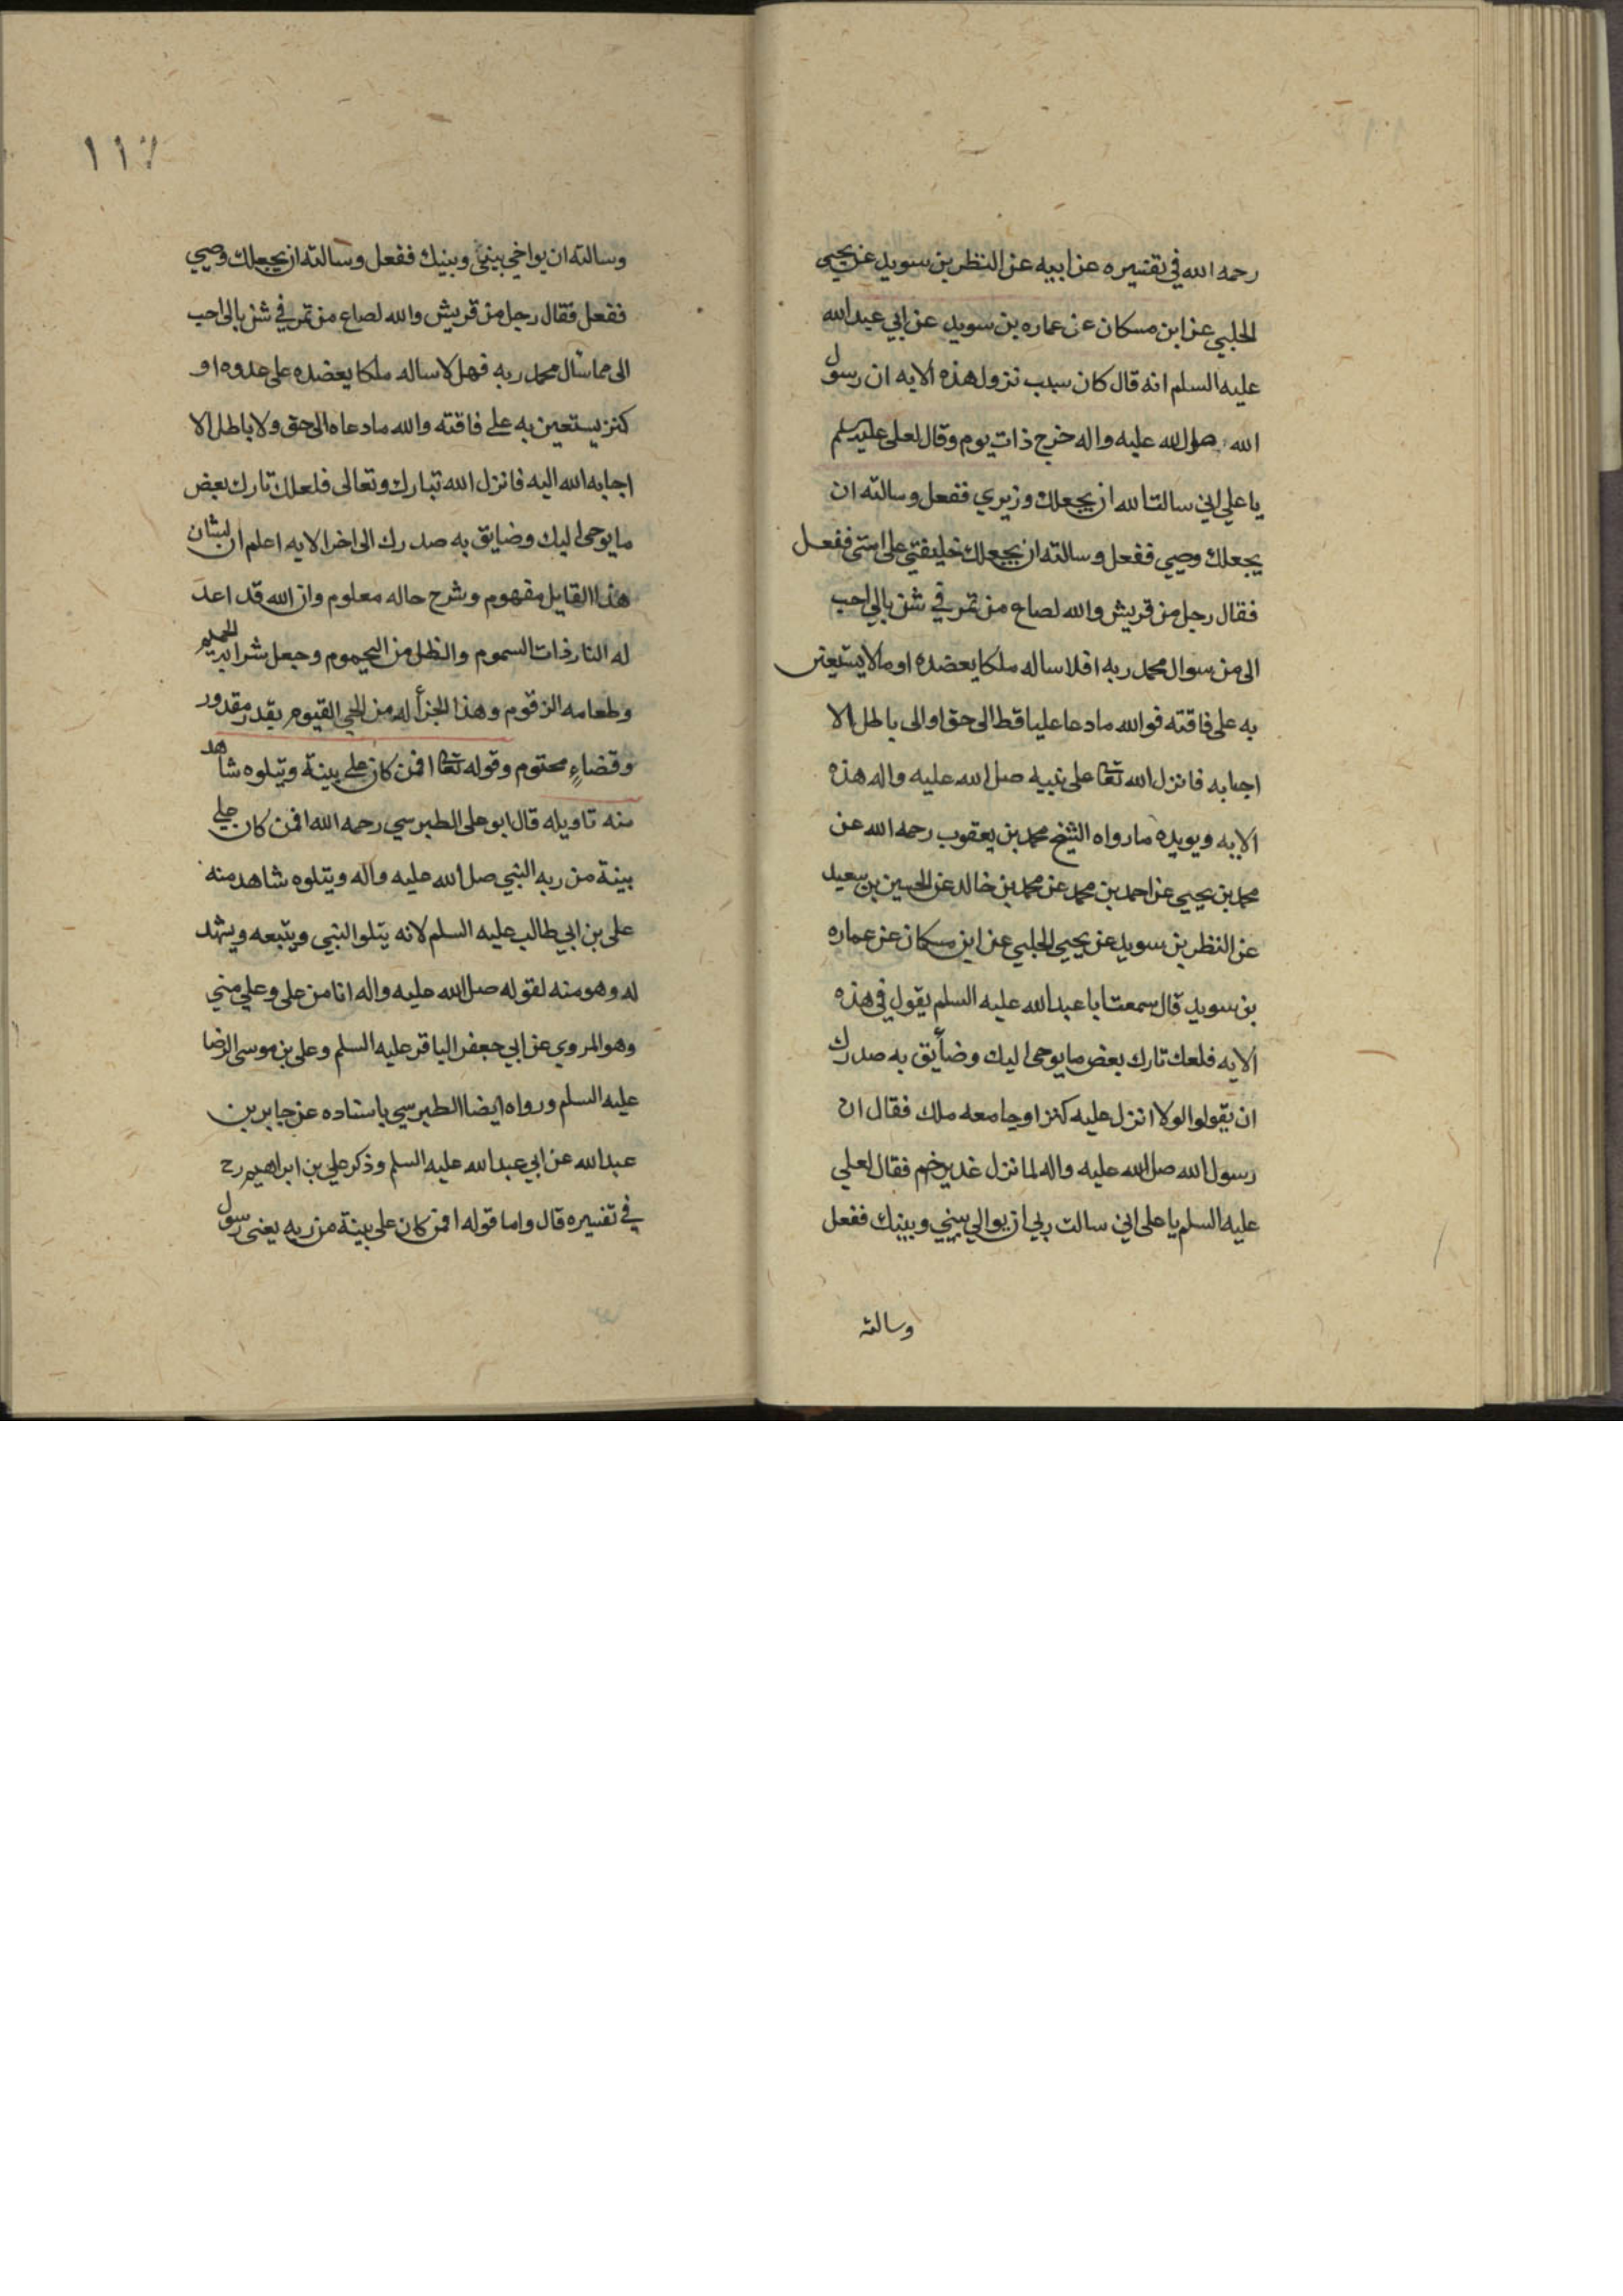 رحمه الله في تفسيره عن ابيه عن النظر بن سويد عن يحيى
الحلبي عن ابن مسكان عن عماره بن سويد عن ابي عبد الله
عليه السلم انه قال كان سبب نزول هذه الايه ان رسول
الله صلى الله عليه واله خرج ذات يوم وقال لعلى عليه السلم
يا على اني سالت الله ان يجعلك وزيري ففعل وسالته ان
يجعلك وصيي ففعل وسالته ان يجعلك خليفتي على امتى ففعل
فقال رجل من قريش والله لصاع من تمر في شن بالي احب
الى من سوال محمد ربه افلا ساله ملكا يعضده او مالا يستعين
به على فاقته فوالله ما دعا عليا قط الى حق او الى باطل الا
اجابه فانزل الله تعا على نبيه صلى الله عليه واله هذه
الايه ويويده ما رواه الشيخ محمد بن يعقوب رحمه الله عن
محمد بن يحيى عن احمد بن محمد عن محمد بن خالد عن الحسين بن سعيد
عن النظر بن سويد عن يحيى الحلبي عن ابن مسكان عن عماره
بن سويد قال سمعت ابا عبد الله عليه السلم يقول في هذه
الايه فلعك تارك بعض ما يوحى اليك وضايق به صدرك
ان يقولوا لولا انزل عليه كنز او جا معه ملك فقال ان
رسول الله صلى الله عليه واله لما نزل غدير خم فقال لعلي
عليه السلم يا على اني سالت ربي ان يوالي بيني وبينك ففعل
وسالته
١١٧
وسالته ان يواخي بيني وبينك ففعل وسالته ان يجعلك وصيي
ففعل فقال رجل من قريش والله لصاع من تمر في شن بالى احب
الى مما سال محمد ربه فهل لا ساله ملكا يعضده على عدوه او
كنز يستعين به على فاقته والله ما دعاه الى حق ولا باطل الا
اجابه الله اليه فانزل الله تبارك وتعالى فلعلك تارك بعض
ما يوحى اليك وضايق به صدرك الى اخر الايه اعلم ان لشان
هذا القايل مفهوم وشرح حاله معلوم وان الله قد اعد
له النار ذات السموم والظل من اليحموم وجعل شرابه الحميم
وطعامه الزقوم وهذا الجزأ له من الحي القيوم بقدر مقدور
وقضاءٍ محتوم وقوله تعا افمن كان على بينة ويتلوه شاهد
منه تاويله قال ابو على الطبرسي رحمه الله افمن كان على
بينة من ربه النبي صلى الله عليه واله ويتلوه شاهد منه
على بن ابي طالب عليه السلم لانه يتلوا النبي ويتبعه ويشهد
له وهو منه لقوله صلى الله عليه واله انا من على وعلي مني
وهو المروي عن ابي جعفر الباقر عليه السلم وعلى بن موسى الرضا
عليه السلم ورواه ايضا الطبرسي باسناده عن جابر بن
عبد الله عن ابي عبد الله عليه السلم وذكر علي بن ابراهيم رح
في تفسيره قال واما قوله افمن كان على بينة من ربه يعنى رسول